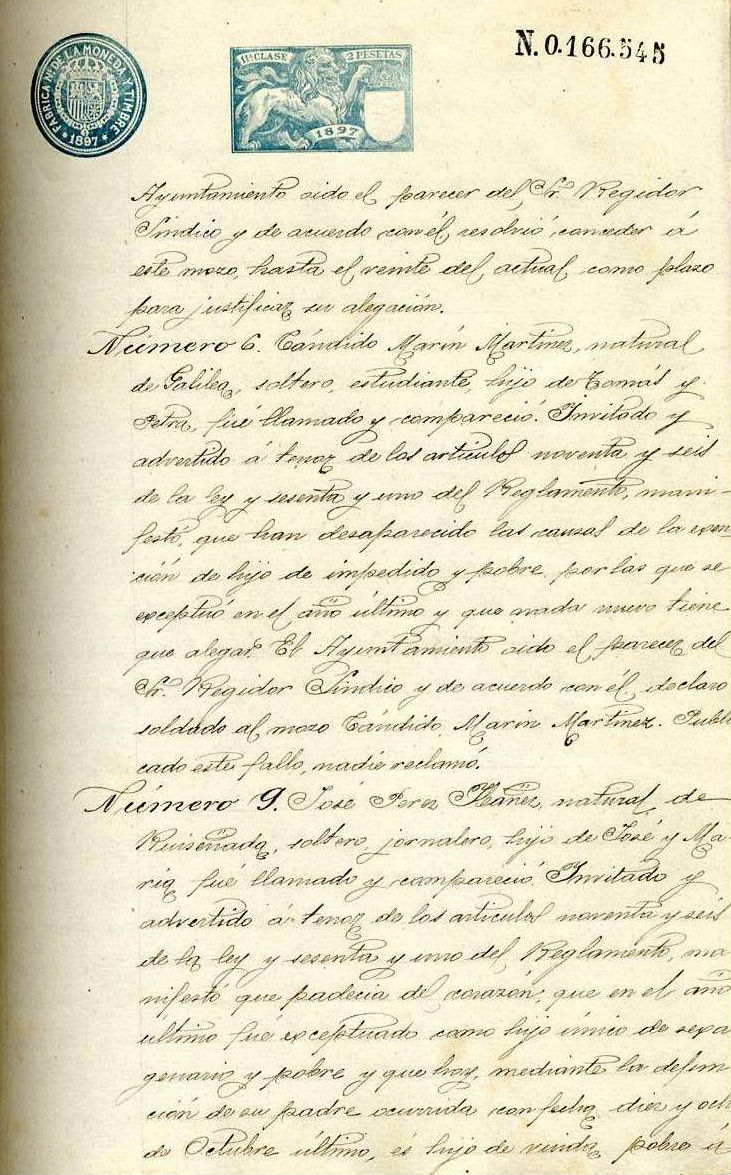 FABRICA Nl. DE LA MONEDA Y TIMBRE
1897
11ª CLASE 2 PESETAS
1897
N.0.166.545
Ayuntamiento oido el parecer del Sr. Regidor
Síndico y de acuerdo con él, resolvió, conceder á
este mozo, hasta el veinte del actual, como plazo
para justificar su alegación.
Número 6. Cándido Marín Martínez, natural
de Galilea, soltero, estudiante, hijo de Tomás y
Petra, fué llamado y compareció. Invitado y
advertido á tenor de los artículos noventa y seis
de la ley y sesenta y uno del Reglamento, mani-
festó, que han desaparecido las causas de la exen
ción de hijo de impedido y pobre, por las que se
exceptuó en el año último y que nada nuevo tiene
que alegar. El Ayuntamiento oido el parecer del
Sr. Regidor Síndico y de acuerdo con él, declaró
soldado al mozo Cándido Marín Martínez. Publi
cado este fallo, nadie reclamó.
Número 9. José Perez Ibáñez, natural de
Ruiseñada, soltero, jornalero, hijo de José y Ma-
ria, fué llamado y compareció. Invitado y
advertido á tenor de los artículos noventa y seis
de la ley y sesenta y uno del Reglamento, ma
nifestó que padecia del corazón; que en el año
último fué exceptuado como hijo único de sexa
genario y pobre y que hoy, mediante la defun
ción de su padre ocurrida con fecha diez y ocho
de Octubre último, és hijo de viuda pobre á